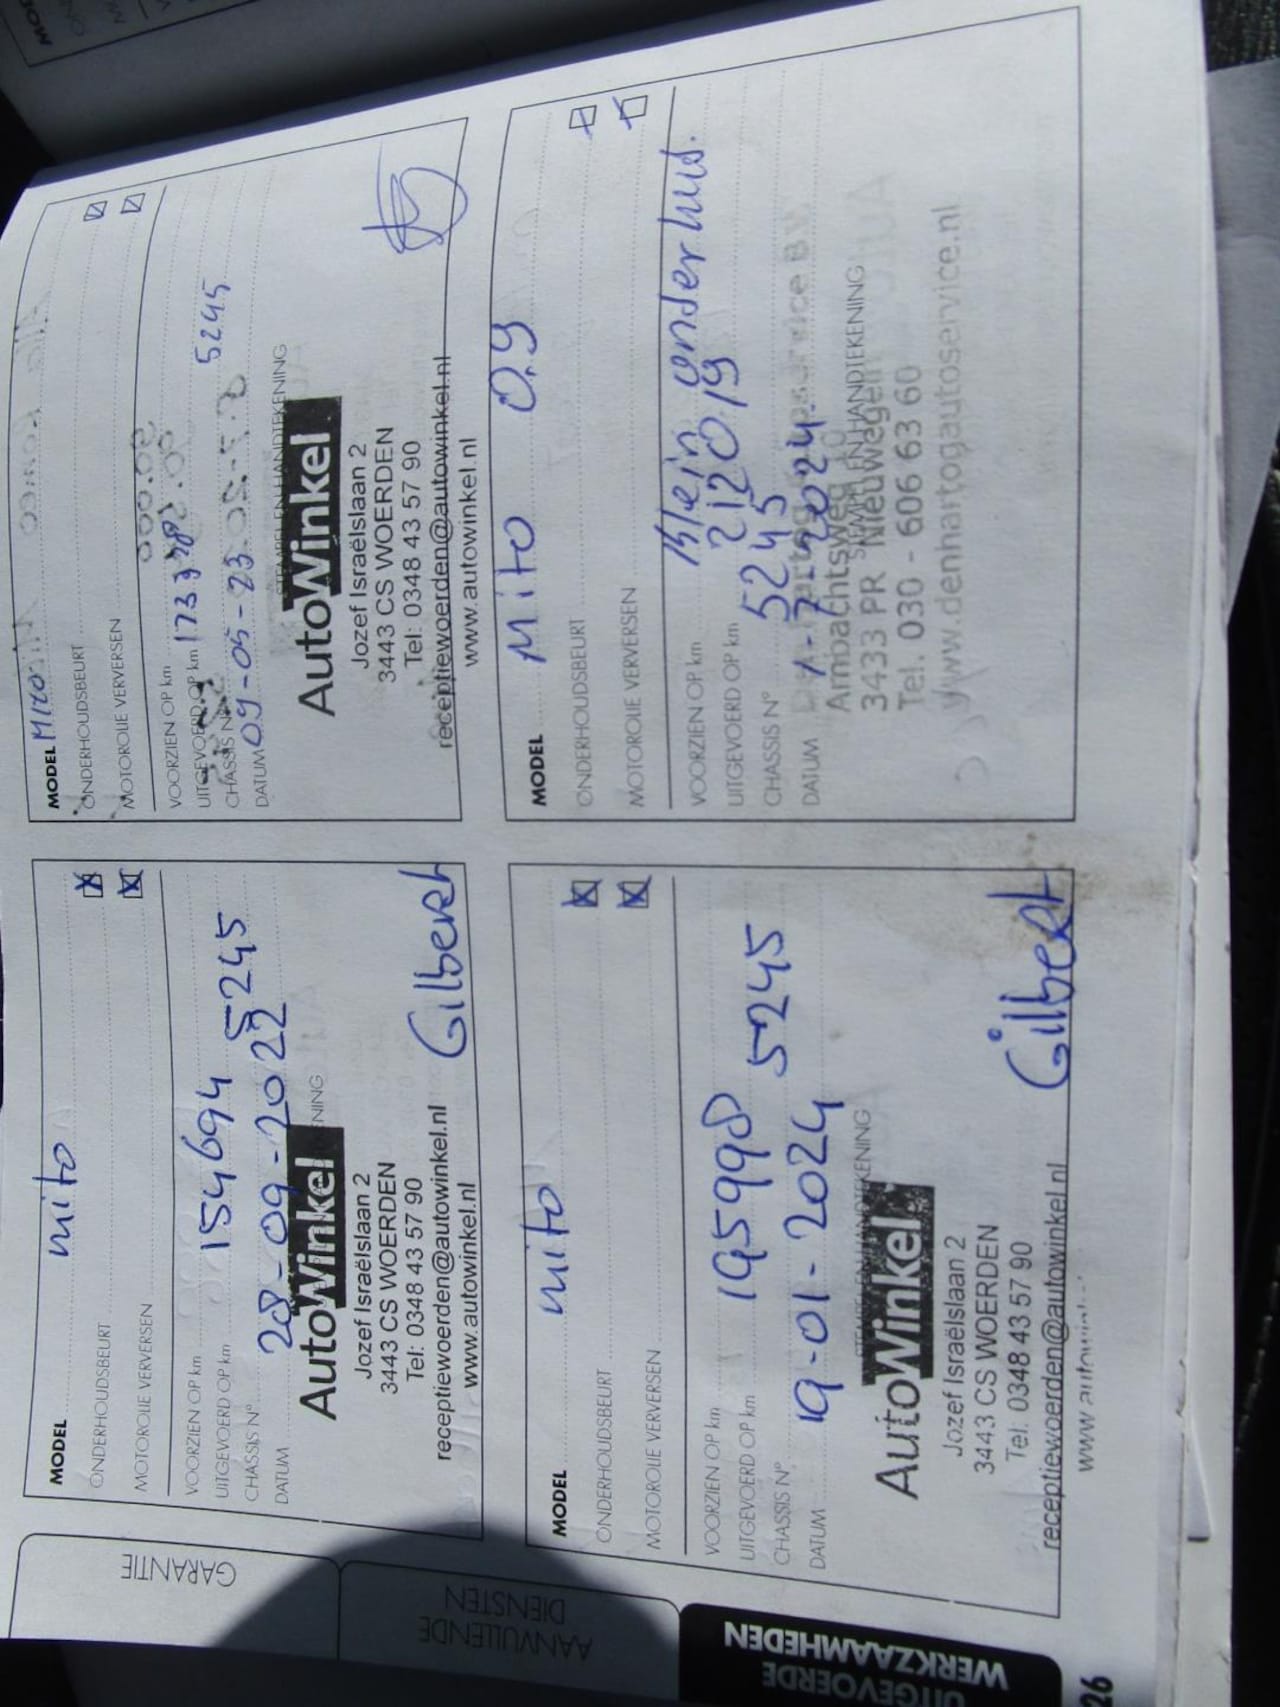 MODEL mito
ONDERHOUDSBEURT
MOTOROLIE VERVERSEN
VOORZIEN OP km
UITGEVOERD OP km 154694
CHASSIS N° 5245
DATUM 28-09-2022
AutoWinkel
Jozef Israëlslaan 2
3443 CS WOERDEN
Tel: 0348 43 57 90
receptiewoerden@autowinkel.nl
www.autowinkel.nl
Gilbert
MODEL Mito
ONDERHOUDSBEURT
MOTOROLIE VERVERSEN
VOORZIEN OP km
UITGEVOERD OP km
CHASSIS N° 5245
DATUM 09-05-23
STEMPEL EN HANDTEKENING
AutoWinkel
Jozef Israëlslaan 2
3443 CS WOERDEN
Tel: 0348 43 57 90
receptiewoerden@autowinkel.nl
www.autowinkel.nl
MODEL mito
ONDERHOUDSBEURT
MOTOROLIE VERVERSEN
VOORZIEN OP km
UITGEVOERD OP km 195998
CHASSIS N° 5245
DATUM 19-01-2024
STEMPEL EN HANDTEKENING
AutoWinkel
Jozef Israëlslaan 2
3443 CS WOERDEN
Tel: 0348 43 57 90
receptiewoerden@autowinkel.nl
Gilbert
MODEL Mito 0.9
ONDERHOUDSBEURT
MOTOROLIE VERVERSEN
VOORZIEN OP km Klein onderhud.
UITGEVOERD OP km 212019
CHASSIS N° 5245
DATUM 1-7-2024.
STEMPEL EN HANDTEKENING
Ambachtsweg
3433 PR Nieuwegein
Tel. 030 - 606 63 60
www.denhartogautoservice.nl
GARANTIE
AANVULLENDE
DIENSTEN
UITGEVOERDE
WERKZAAMHEDEN
26